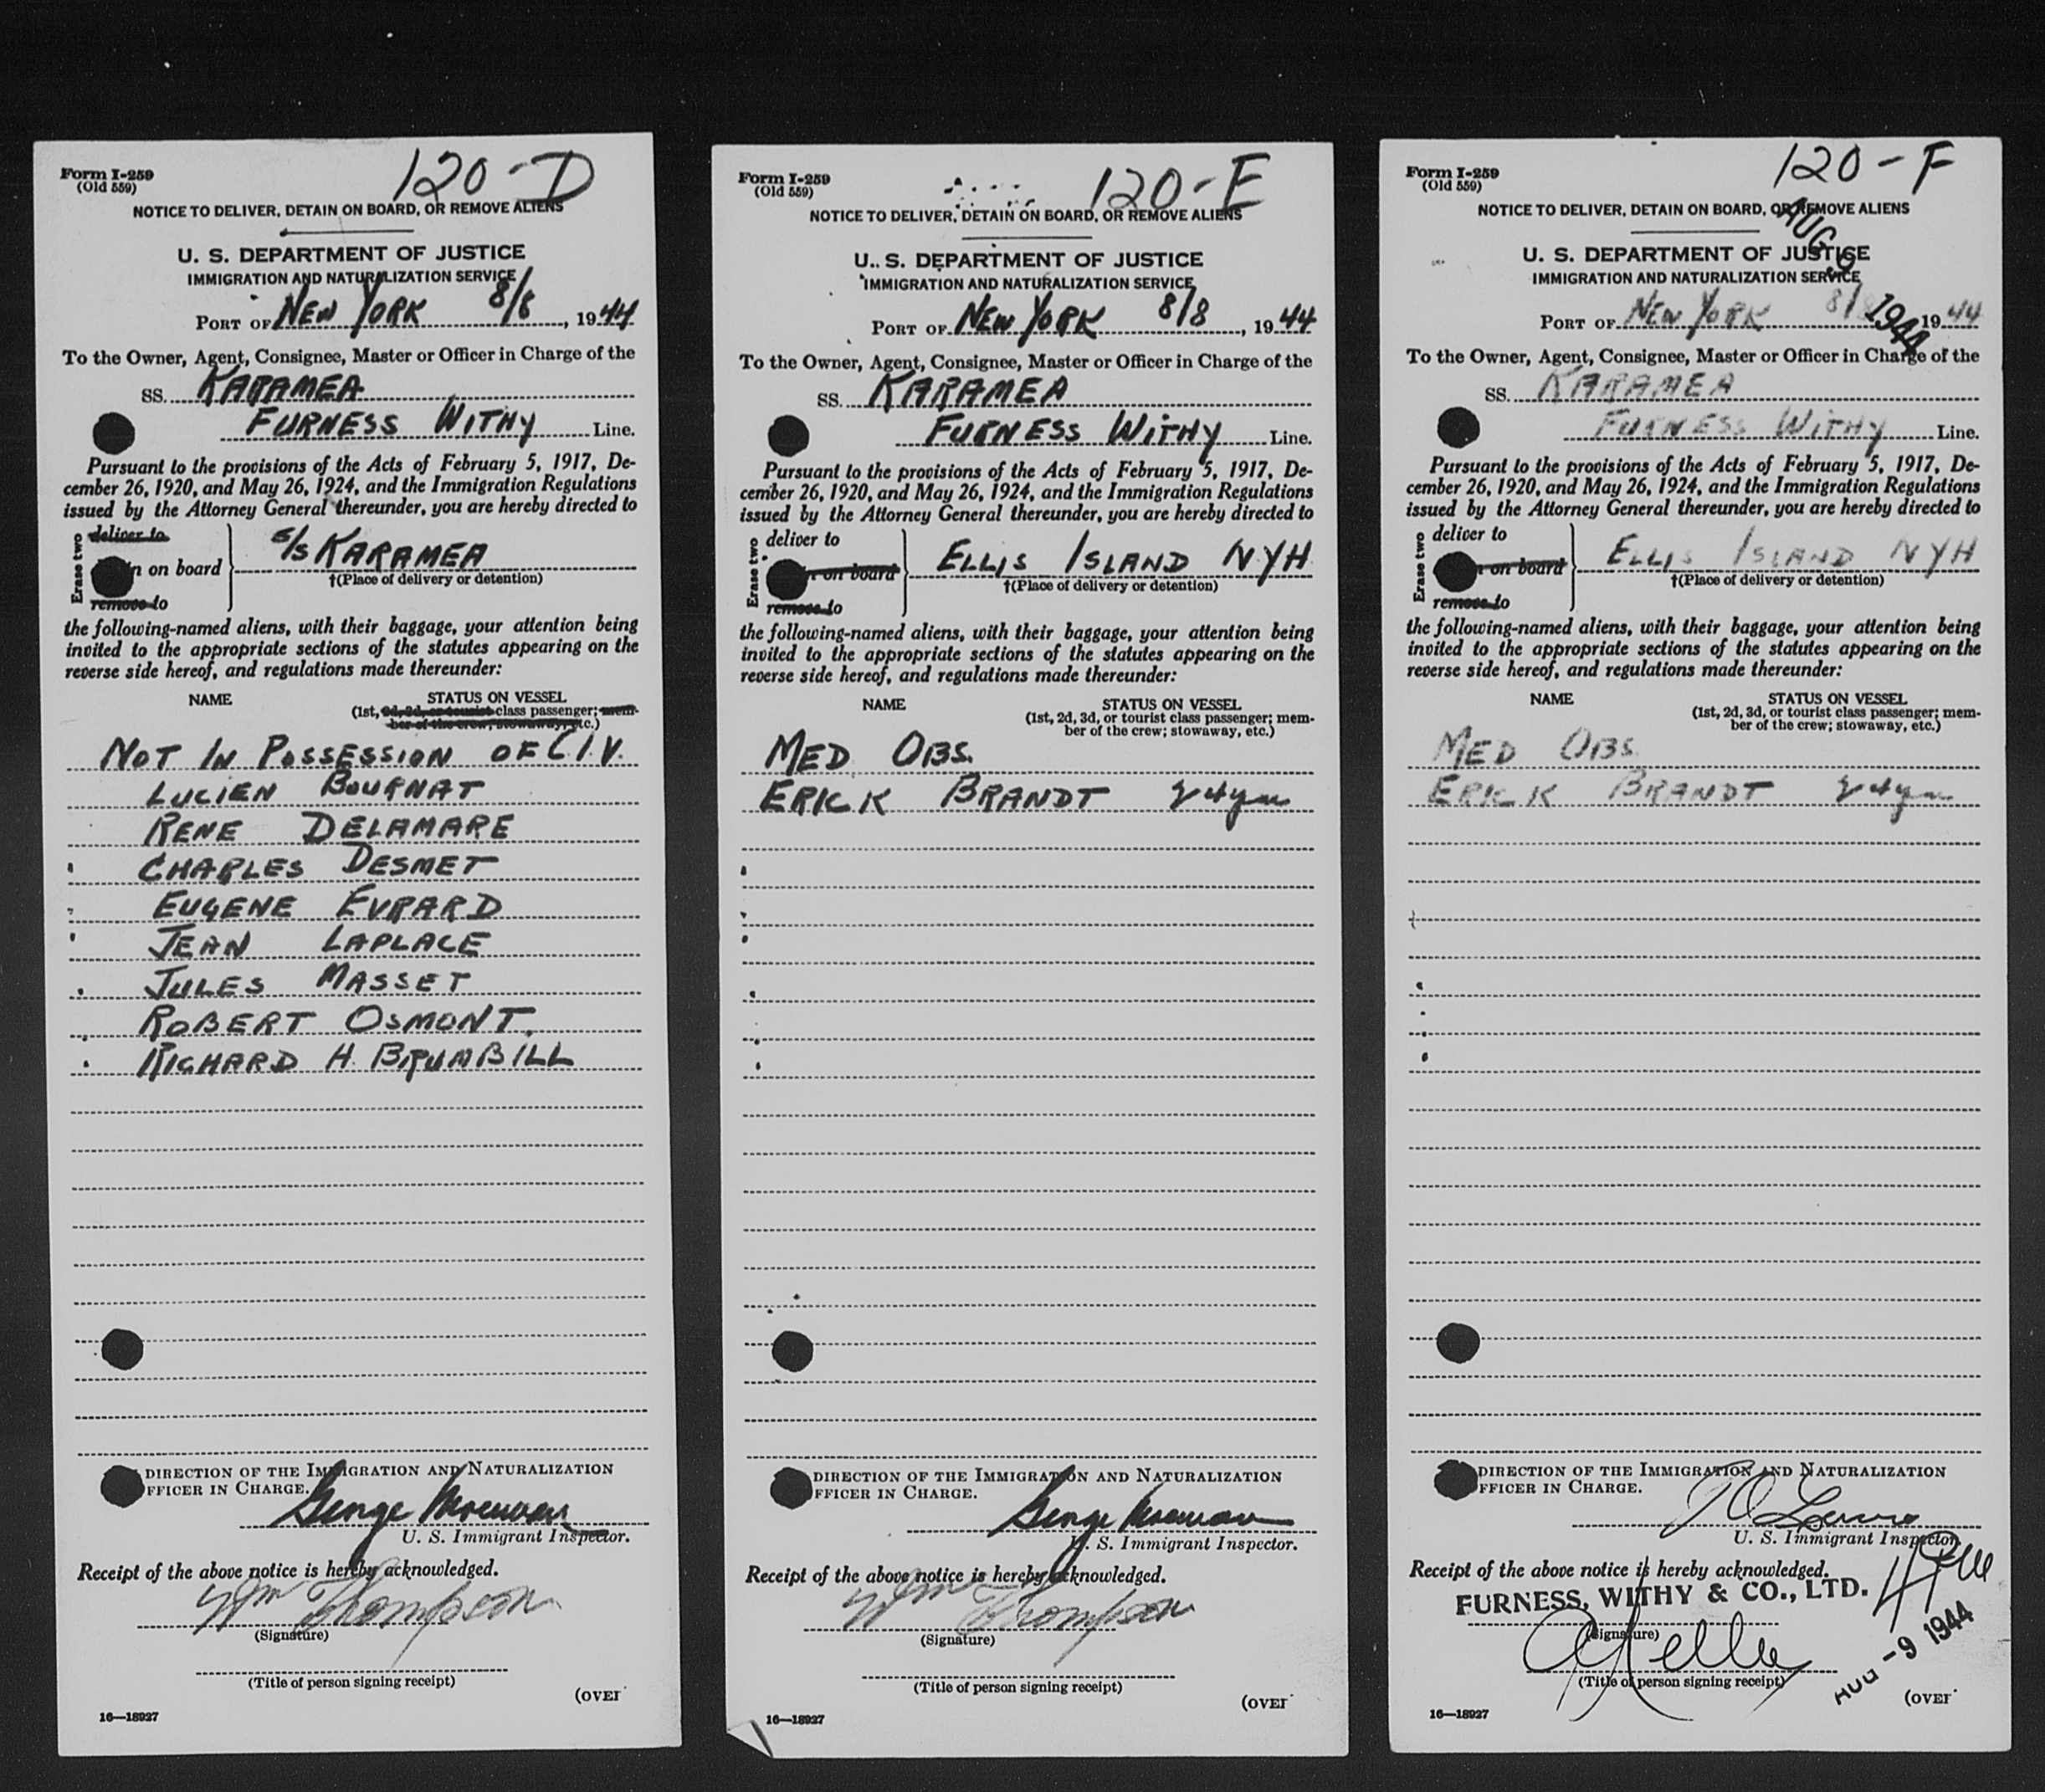 120-D
Form I-259
(Old 559)
NOTICE TO DELIVER, DETAIN ON BOARD, OR REMOVE ALIENS
U. S. DEPARTMENT OF JUSTICE
IMMIGRATION AND NATURALIZATION SERVICE
PORT OF NEW YORK 8/8, 1944
To the Owner, Agent, Consignee, Master or Officer in Charge of the
SS. KARAMEA
FURNESS WITHY Line.
Pursuant to the provisions of the Acts of February 5, 1917, De-
cember 26, 1920, and May 26, 1924, and the Immigration Regulations
issued by the Attorney General thereunder, you are hereby directed to
Erase two
deliver to
n on board
remove to
S/S KARAMEA
†(Place of delivery or detention)
the following-named aliens, with their baggage, your attention being
invited to the appropriate sections of the statutes appearing on the
reverse side hereof, and regulations made thereunder:
NAME STATUS ON VESSEL
(1st, 2d, 3d, or tourist class passenger; mem-
ber of the crew; stowaway, etc.)
NOT IN POSSESSION OF C.I.V.
LUCIEN BOURNAT
RENE DELAMARE
CHARLES DESMET
EUGENE EVRARD
JEAN LAPLACE
JULES MASSET
ROBERT OSMONT.
RICHARD H. BRUMBILL
DIRECTION OF THE IMMIGRATION AND NATURALIZATION
FFICER IN CHARGE.
George
U. S. Immigrant Inspector.
Receipt of the above notice is hereby acknowledged.
Wm Thompson
(Signature)
(Title of person signing receipt)
(OVER
16—18927
120-E
Form I-259
(Old 559)
NOTICE TO DELIVER, DETAIN ON BOARD, OR REMOVE ALIENS
U. S. DEPARTMENT OF JUSTICE
IMMIGRATION AND NATURALIZATION SERVICE
PORT OF NEW YORK 8/8, 1944
To the Owner, Agent, Consignee, Master or Officer in Charge of the
SS. KARAMEA
FURNESS WITHY Line.
Pursuant to the provisions of the Acts of February 5, 1917, De-
cember 26, 1920, and May 26, 1924, and the Immigration Regulations
issued by the Attorney General thereunder, you are hereby directed to
Erase two
deliver to
n on board
remove to
ELLIS ISLAND NYH
†(Place of delivery or detention)
the following-named aliens, with their baggage, your attention being
invited to the appropriate sections of the statutes appearing on the
reverse side hereof, and regulations made thereunder:
NAME STATUS ON VESSEL
(1st, 2d, 3d, or tourist class passenger; mem-
ber of the crew; stowaway, etc.)
MED OBS.
ERICK BRANDT 24yrs
DIRECTION OF THE IMMIGRATION AND NATURALIZATION
FFICER IN CHARGE.
George
U. S. Immigrant Inspector.
Receipt of the above notice is hereby acknowledged.
Wm Thompson
(Signature)
(Title of person signing receipt)
(OVER
16—18927
120-F
Form I-259
(Old 559)
NOTICE TO DELIVER, DETAIN ON BOARD, OR REMOVE ALIENS
AUG 9 1944
U. S. DEPARTMENT OF JUSTICE
IMMIGRATION AND NATURALIZATION SERVICE
PORT OF NEW YORK 8/8 1944
To the Owner, Agent, Consignee, Master or Officer in Charge of the
SS. KARAMEA
FURNESS WITHY Line.
Pursuant to the provisions of the Acts of February 5, 1917, De-
cember 26, 1920, and May 26, 1924, and the Immigration Regulations
issued by the Attorney General thereunder, you are hereby directed to
Erase two
deliver to
n on board
remove to
ELLIS ISLAND NYH
†(Place of delivery or detention)
the following-named aliens, with their baggage, your attention being
invited to the appropriate sections of the statutes appearing on the
reverse side hereof, and regulations made thereunder:
NAME STATUS ON VESSEL
(1st, 2d, 3d, or tourist class passenger; mem-
ber of the crew; stowaway, etc.)
MED OBS.
ERICK BRANDT 24yrs
DIRECTION OF THE IMMIGRATION AND NATURALIZATION
FFICER IN CHARGE.
U. S. Immigrant Inspector.
Receipt of the above notice is hereby acknowledged.
FURNESS, WITHY & CO., LTD.
(Signature)
(Title of person signing receipt)
AUG -9 1944
(OVER
16—18927